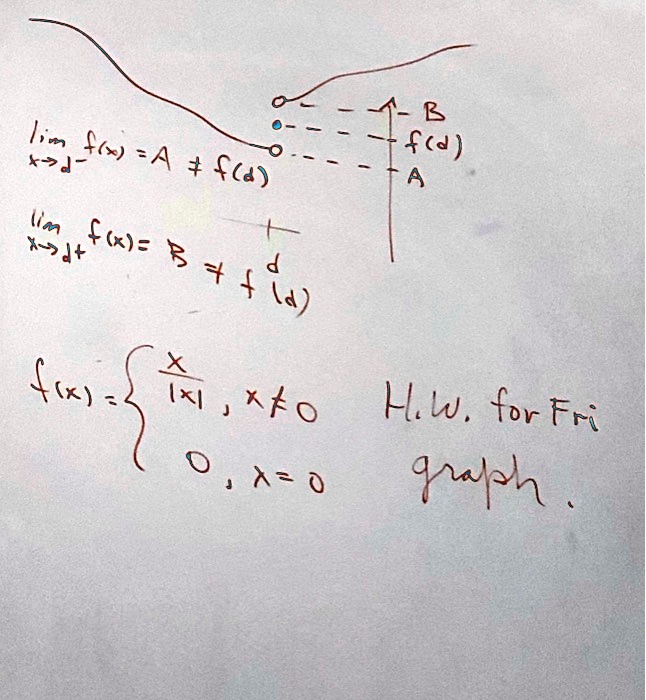 B
f(d)
A
lim f(x) = A ≠ f(d)
x→d-
lim f(x) = B ≠ f(d)
x→d+
d
f(x) = { x/|x| , x≠0
0 , x=0
H.W. for Fri
graph.